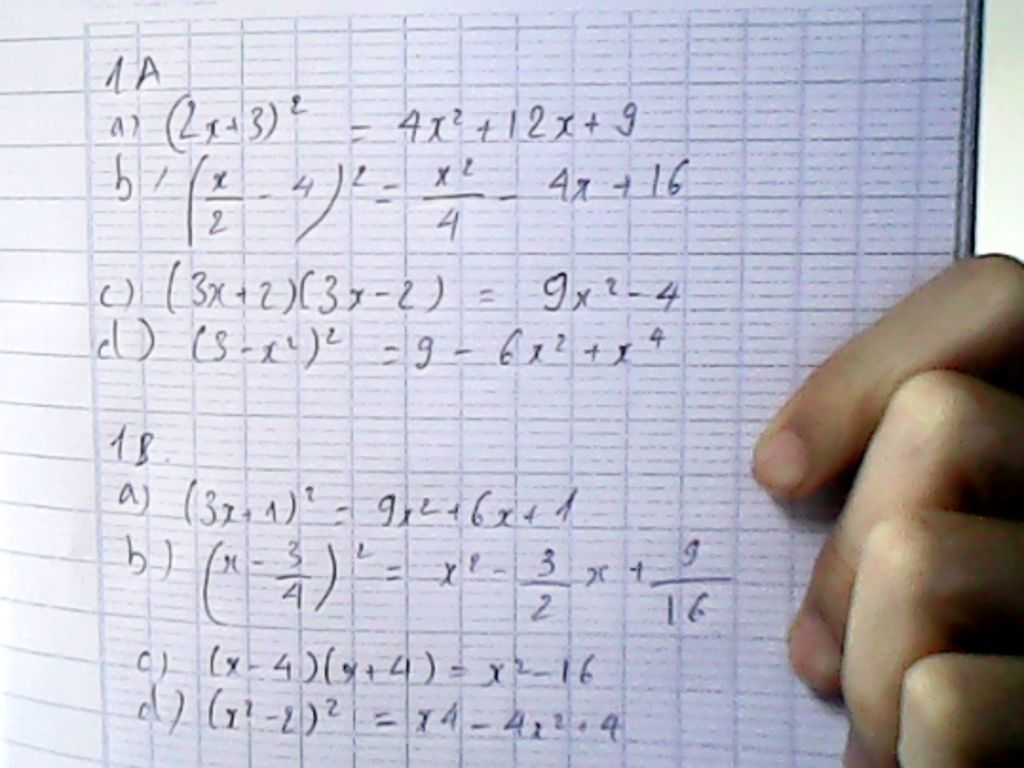 1A
a) (2x+3)² = 4x² + 12x + 9
b) (x/2 - 4)² = x²/4 - 4x + 16
c) (3x+2)(3x-2) = 9x² - 4
d) (3-x²)² = 9 - 6x² + x⁴
1B.
a) (3x+1)² = 9x² + 6x + 1
b) (x - 3/4)² = x² - 3/2 x + 9/16
c) (x-4)(x+4) = x² - 16
d) (x²-2)² = x4 - 4x² + 4